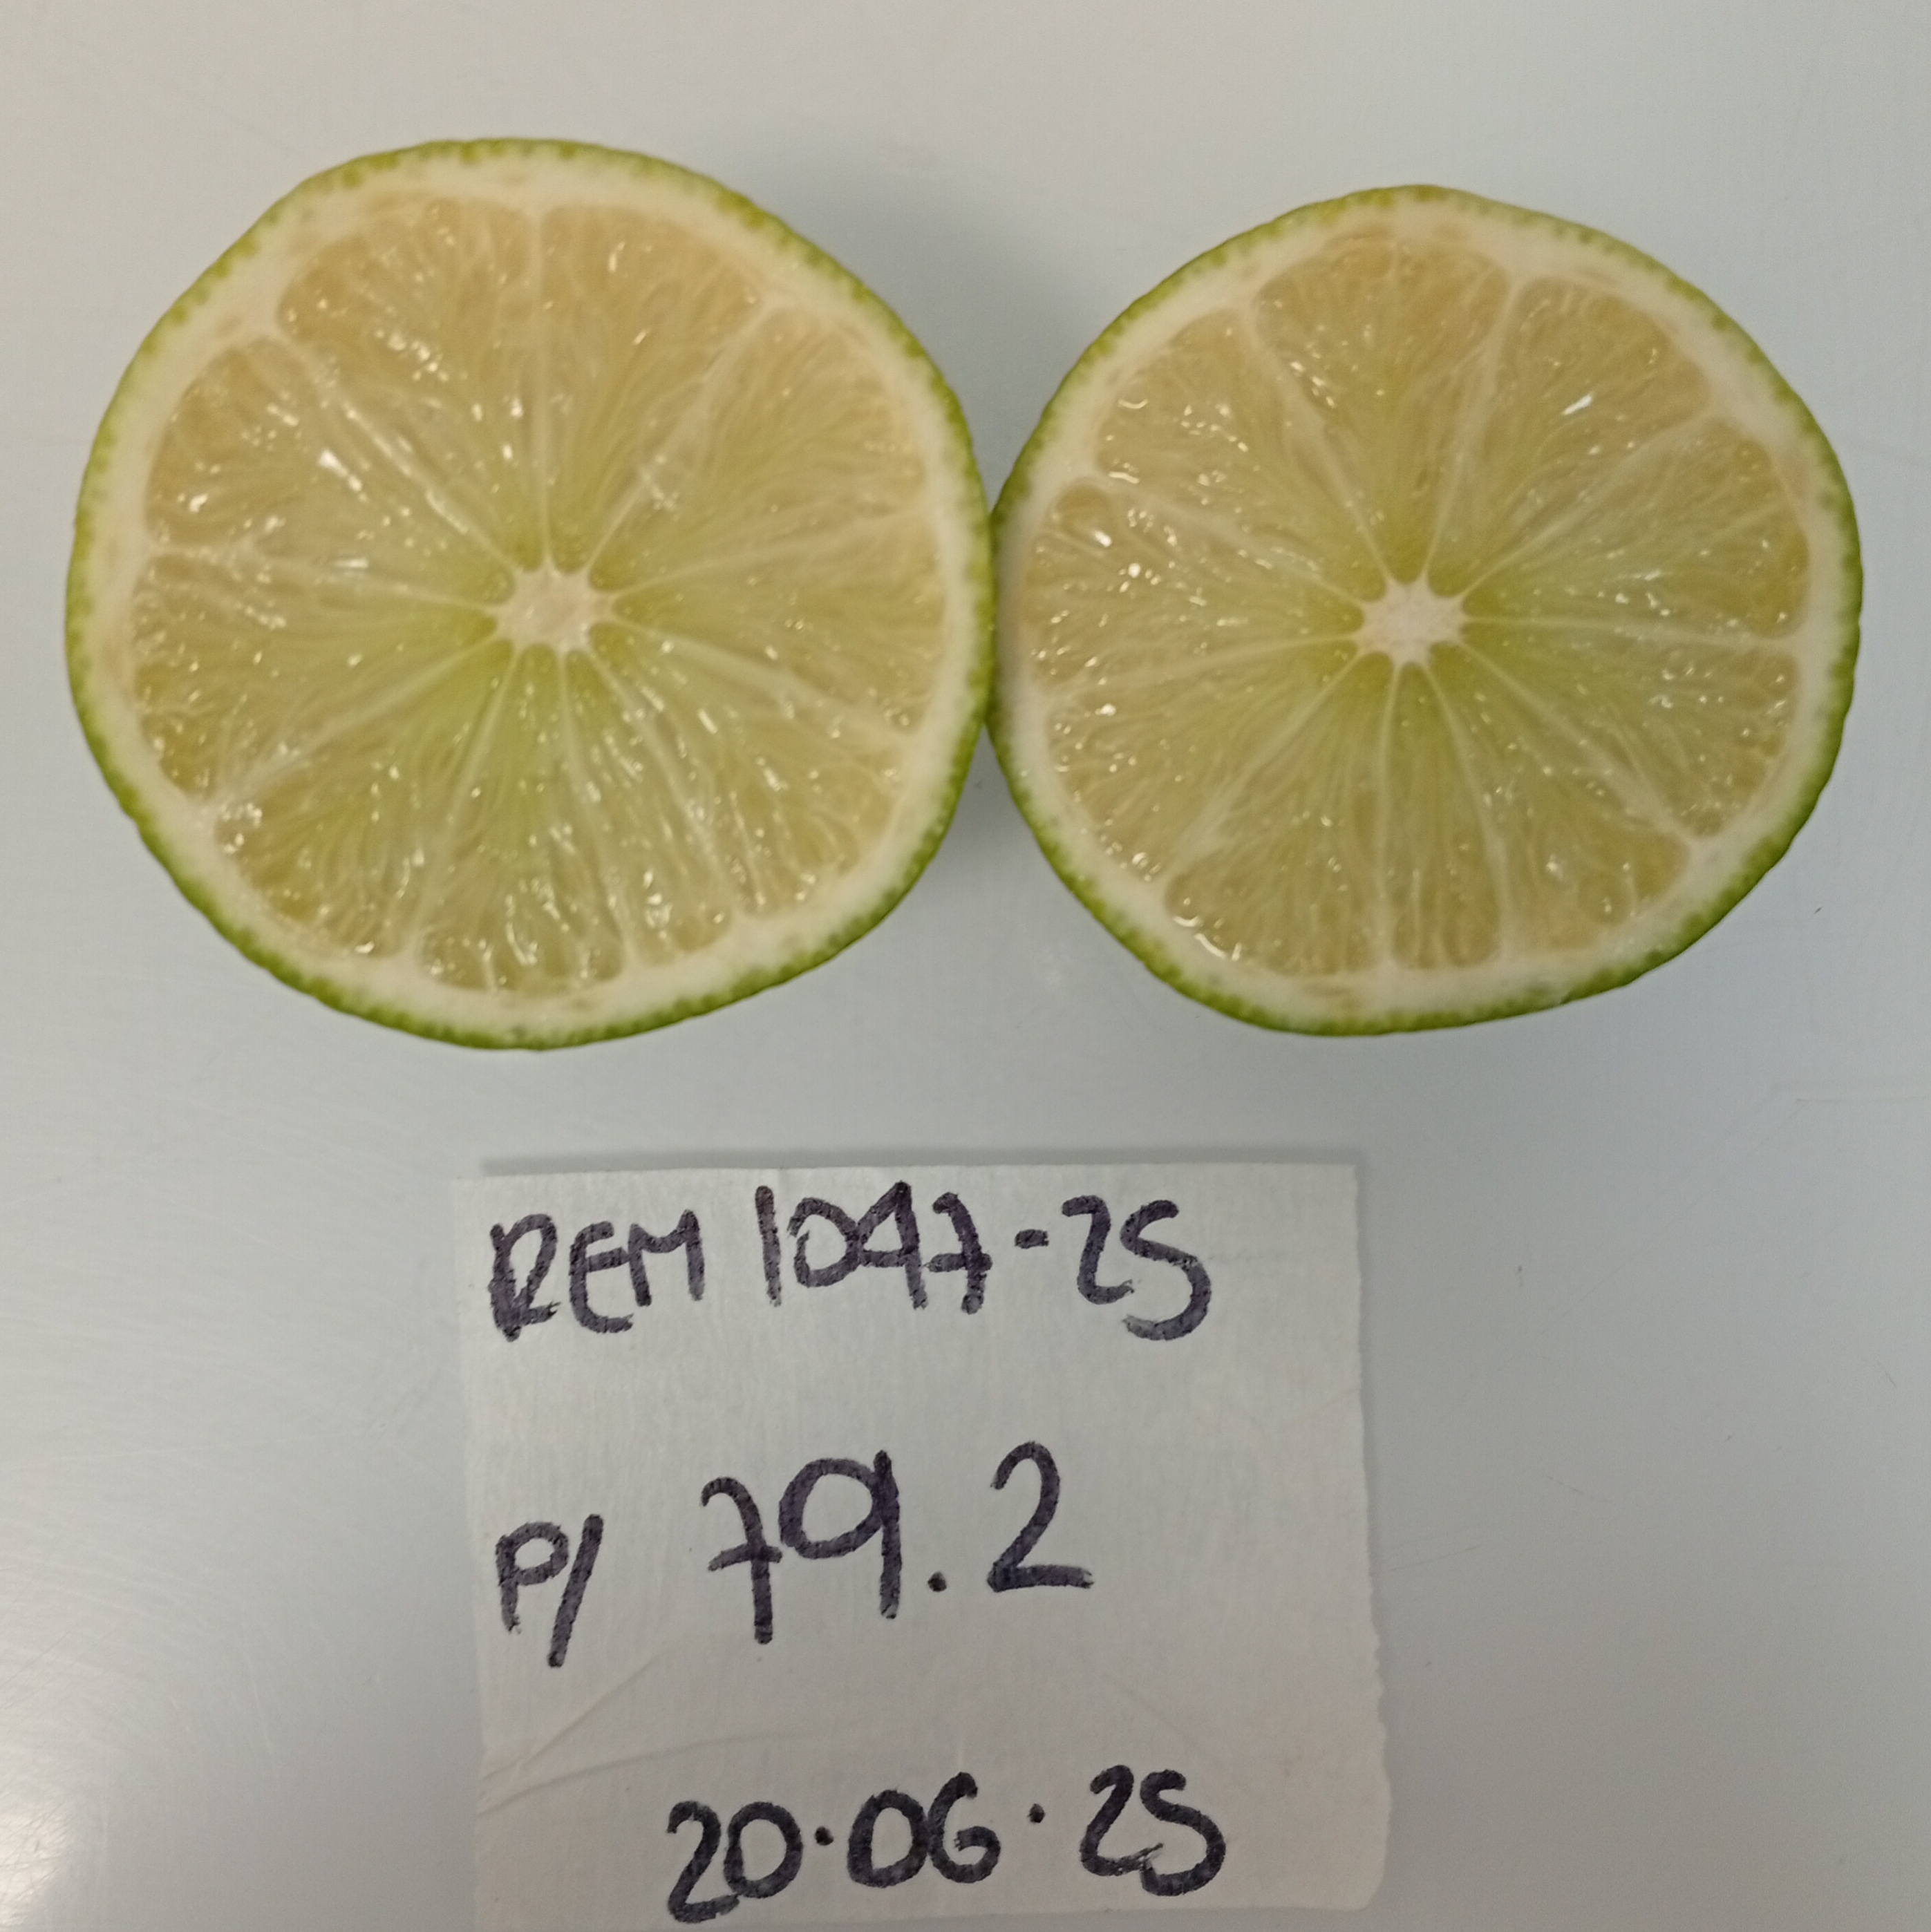 REM 1047-25
P/ 79.2
20.06.25